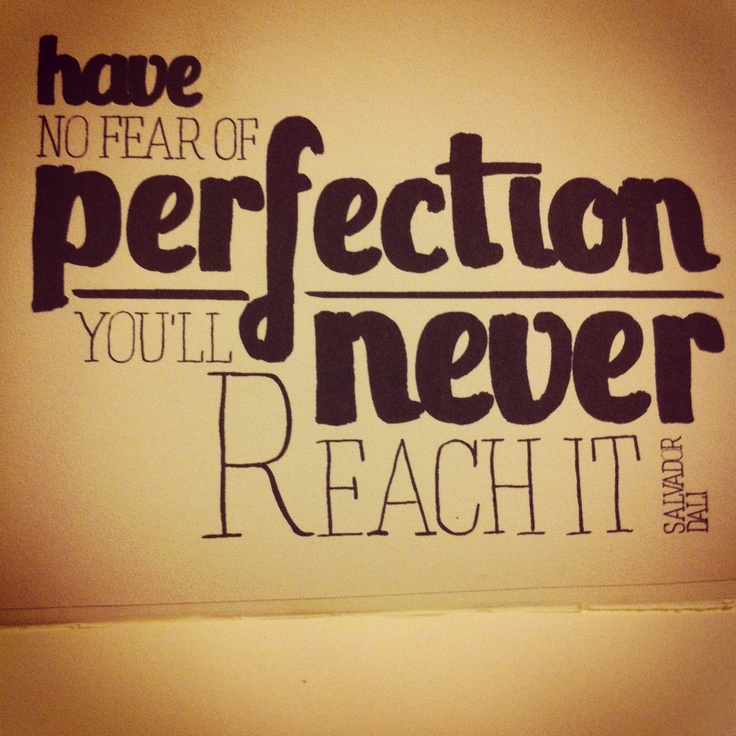 have
NO FEAR OF
perfection
YOU'LL never
REACH IT
SALVADOR
DALI